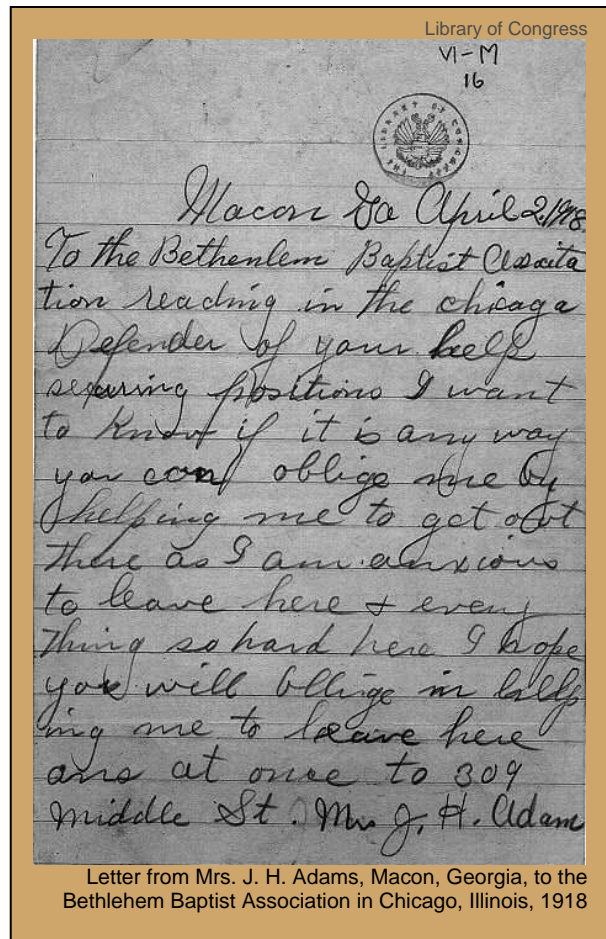 Library of Congress
VI-M
16
THE LIBRARY OF CONGRESS
Macon Ga April 2, 1918.
To the Bethenlem Baptist Asscita
tion reading in the chicaga
Defender of your help
securing positions I want
to know if it is any way
you can oblige me by
helping me to get out
there as I am anxious
to leave here & every
thing so hard here I hope
you will oblige in help
ing me to leave here
ans at once to 309
Middle St. Mrs J. H. Adam
Letter from Mrs. J. H. Adams, Macon, Georgia, to the
Bethlehem Baptist Association in Chicago, Illinois, 1918